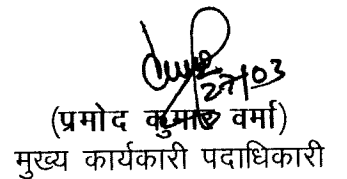 27/03
(प्रमोद कुमार वर्मा)
मुख्य कार्यकारी पदाधिकारी